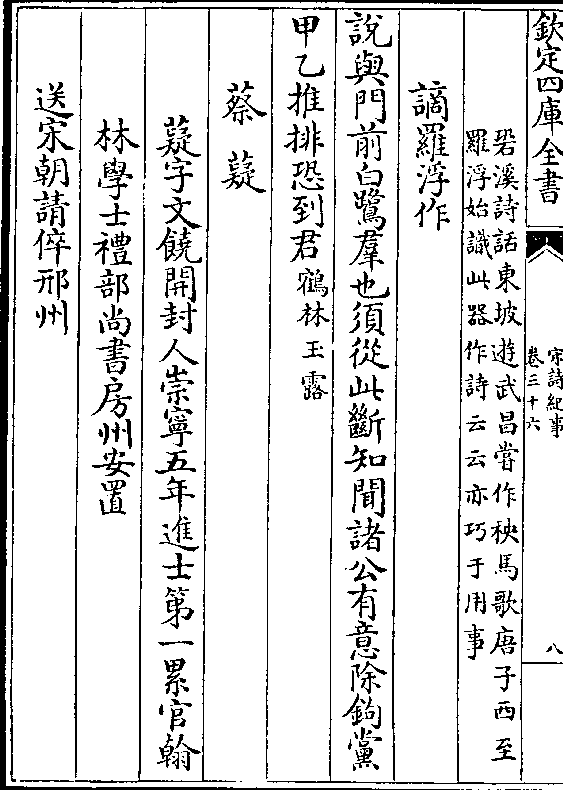 欽定四庫全書
宋詩紀事
卷三十六
八
䂬溪詩話東坡遊武昌嘗作秧馬歌唐子西至
羅浮始識此器作詩云云亦巧于用事
謫羅浮作
說與門前白鷺羣也須從此斷知聞諸公有意除鉤黨
甲乙推排恐到君鶴林玉露
蔡薿
薿字文饒開封人崇寧五年進士第一累官翰
林學士禮部尚書房州安置
送宋朝請倅邢州